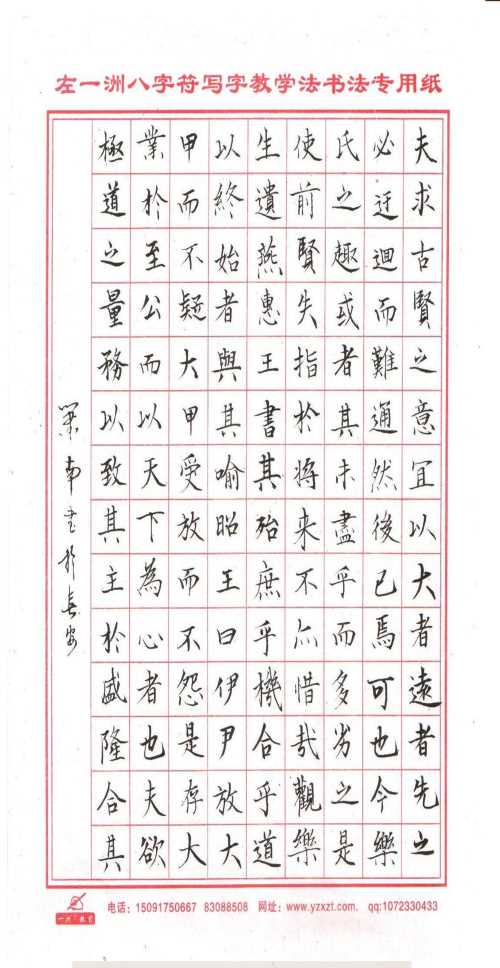 左一洲八字符写字教学法书法专用纸
夫求古賢之意宜以大者遠者先之
必迂迴而難通然後已焉可也今樂
氏之趣或者其未盡乎而多劣之是
使前賢失指於將來不亦惜哉觀樂
生遺燕惠王書其殆庶乎機合乎道
以終始者與其喻昭王曰伊尹放大
甲而不疑大甲受放而不怨是存大
業於至公而以天下為心者也夫欲
極道之量務以致其主於盛隆合其
南書於長安
一洲教育
电话：15091750667 83088508 网址：www.yzxzt.com. qq:1072330433